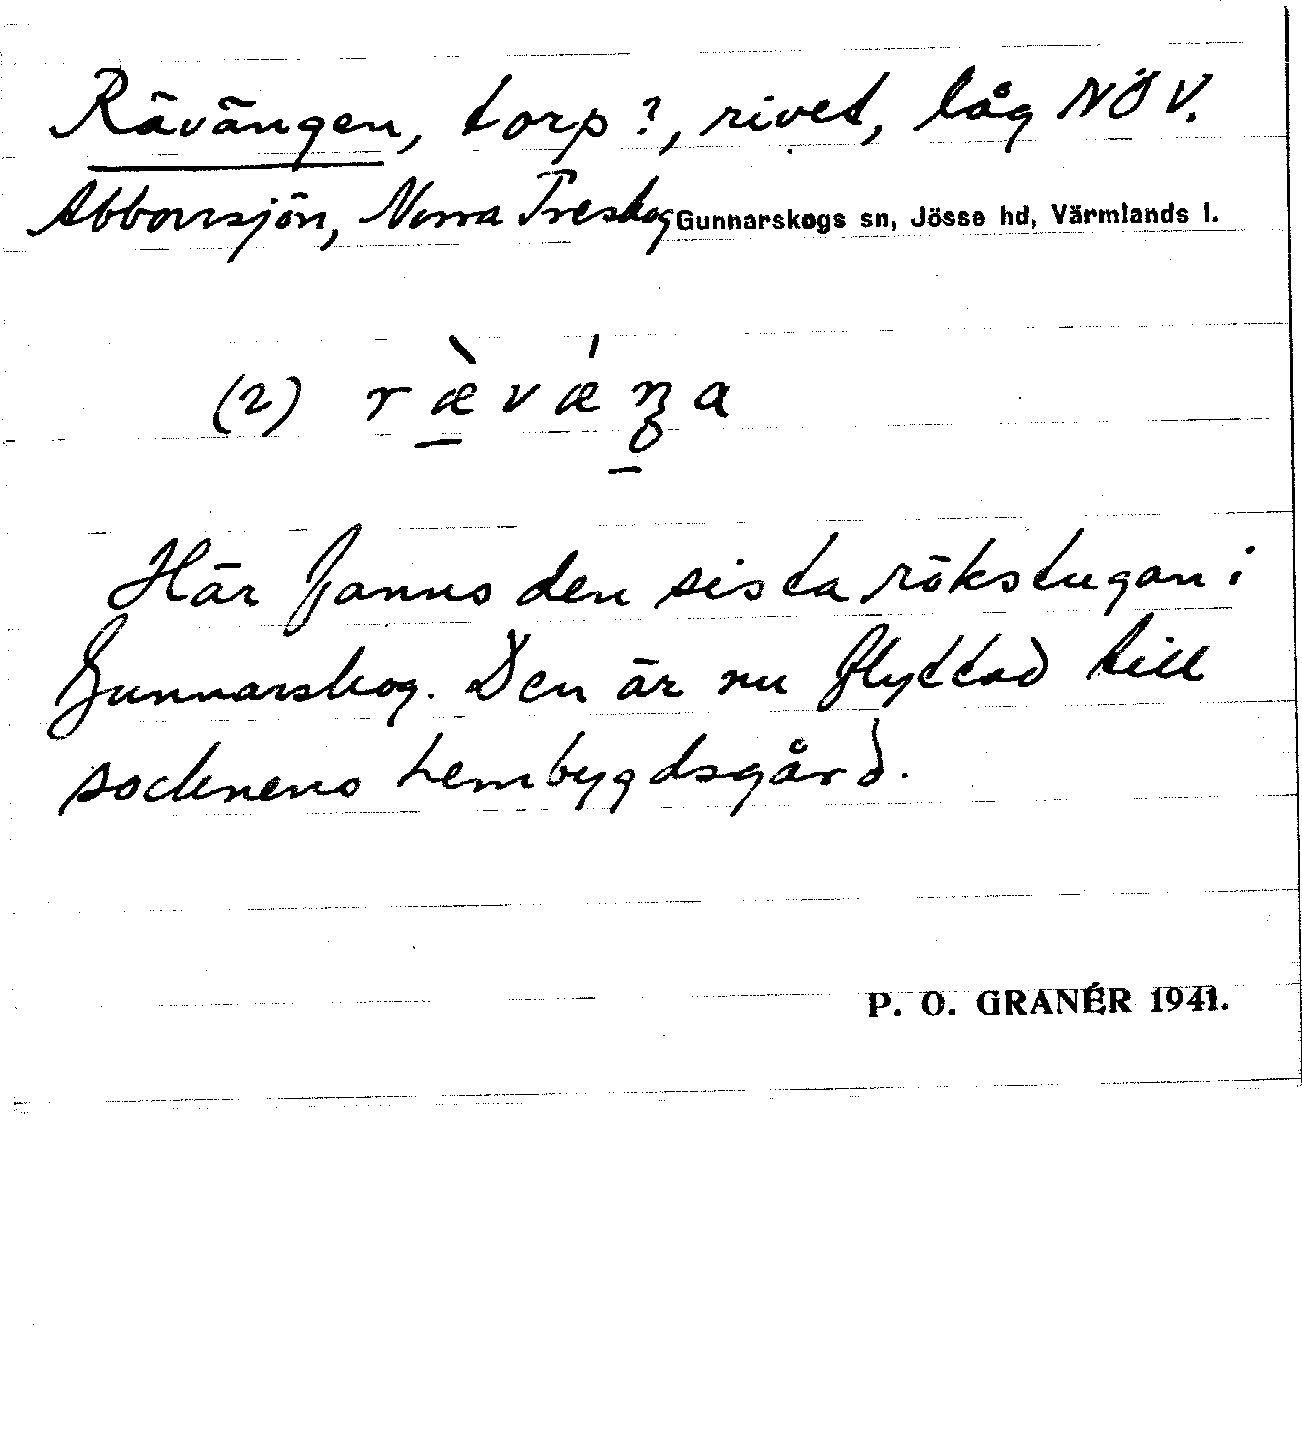 Rävängen, torp?, rivet, låg NÖ V.
Abborrsjön, Norra Treskog Gunnarskogs sn, Jösse hd, Värmlands l.
(2) ræ̀vǽŋa
Här fanns den sista rökstugan i
Gunnarskog. Den är nu flyttad till
socknens hembygdsgård.
P. O. GRANÉR 1941.